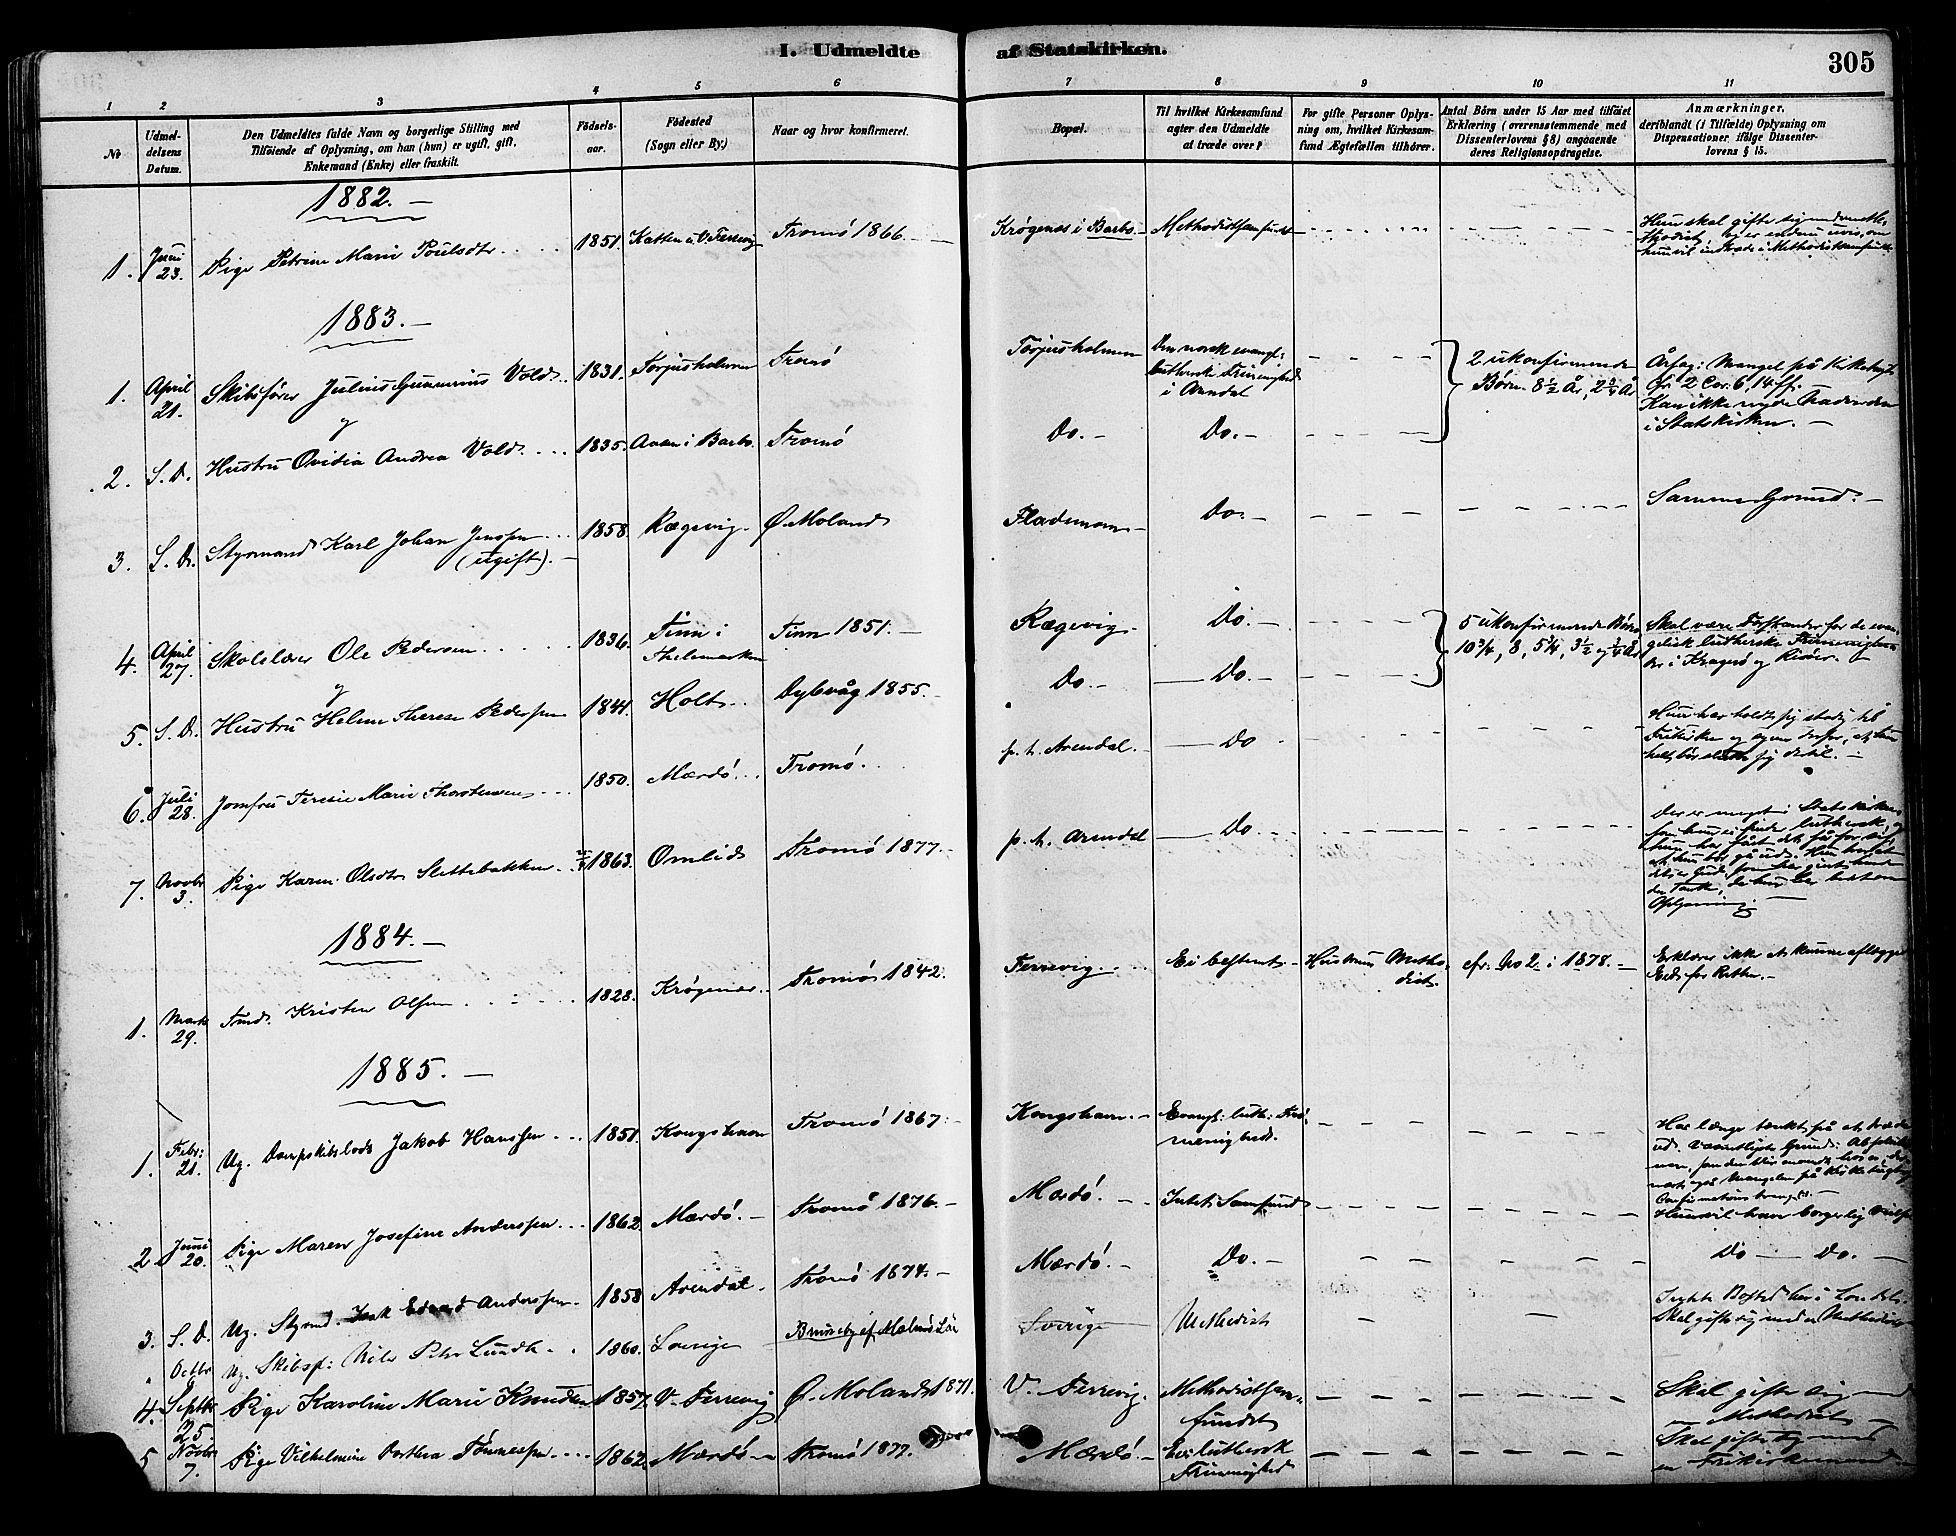 I. Udmeldte af Statskirken.
305
1 2 3 4 5 6 7 8 9 10 11
No
Udmeldelsens Datum.
Den Udmeldtes fulde Navn og borgerlige Stilling med
Tilføiende af Oplysning, om han (hun) er ugift, gift,
Enkemand (Enke) eller fraskilt.
Fødselsaar.
Fødested
(Sogn eller By).
Naar og hvor konfirmeret.
Bopæl.
Til hvilket Kirkesamfund
agter den Udmeldte
at træde over?
For gifte Personer Oplysning om, hvilket Kirkesamfund Ægtefællen tilhører.
Antal Børn under 15 Aar med tilføiet
Erklæring (overensstemmende med
Dissenterlovens § 8) angaaende
deres Religionsopdragelse.
Anmærkninger,
deriblandt (i Tilfælde) Oplysning om
Dispensationer ifølge Dissenterlovens § 15.
1882.
1. Juni 23. Pige Petrine Marie Poulsdtr. 1851. V. Terrevig Tromø 1866. Krøgenes i Barbo. Methodistsamfundet
1883.
1. April 21. Skibsfører Julius Gunnerius Vold 1831. Torjusholmen Tromø Torjusholmen Den norsk evangl: lutherske Frimenighed i Arendal 2 ukonfirmerede Børn 8 1/2 År, 2 3/4 År Årsag: Mangel på Kirketugt cfr. 2 Cor. 6, 14 ff. Kan ikke nyde Nadverden i Statskirken.
og
2. S. D. Hustru Ovidia Andrea Vold 1835. i Barbo. Tromø Do. Do.
3. S. D. Styrmand Karl Johan Jenssen (ugift). 1858. Rægevig Ø. Moland Do. Samme Grund.
4. April 27. Skolelærer Ole Pedersen 1836. Tinn i Thelemarken Tinn 1851. Rægevig. Do. 5 ukonfirmerede Børn 10 3/4, 8, 5 1/4, 3 1/2 og 1/4 År Skal være Forstander for de evangelisk lutherske Frimenigheder i Kragerø og Risøer.
og
5. S. D. Hustru Helene Therese Pederssen 1841. Holt. Dybvåg 1855. Do. Do.
6. Juli 28. Jomfru Teresie Marie Thorstensen 1850. Mærdø. Tromø. p. t. Arendal. Do Hun har holdt sig stadig til Frikirken og
7. Novbr 3. Pige Karen Olsdtr Slettebakken 1863. Omlid Tromø 1877. p. t. Arendal Do. Der er meget i Statskirken Oplysning.
1884.
1. Marts 29. Kristen Olsen 1828. Krøgenes. Tromø 1842. Terrevig. Ei bestemt. Hustrus Methodist. cfr. No 2 i 1878. Erklærer ikke at kunne aflægge Eed for Retten.
1885.
1. Febr: 21. Ug. Dampskibslods Jakob Hanssen 1851. Kongshavn Tromø 1867. Kongshavn. Evangl: luth: Frimenighed. Har længe tænkt på at træde ud.
2 Juni 20. Pige Maren Josefine Anderssen 1862. Mærdø. Tromø 1876. Mærdø. Intet Samfund Hun vil have borgerlig Vielse
3. S. D. Ug. Styrmd. Isak Edvard Anderssen. 1858 Arendal. Tromø 1874. Mærdø. Do. Do Do.
Octbr 9 Ug. Skibsf: Nils Peter Lundh 1860. Sverige Sverige Methodist Skal gifte sig med en Methodist
4. Septbr 25. Pige Karoline Marie Knudsen 1857. V. Terrevig Ø. Moland 1871. V. Terrevig. Methodistsamfundet Skal gifte sig med Methodist
5 Novbr 7. Pige Vilhelmine Dorthea Tønnessen 1862. Mærdø Tromø 1877. Mærdø. Ev. luthersk Frimenighed Skal gifte sig med en Frikirkemand